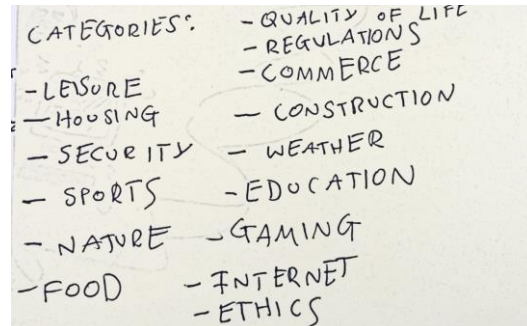 CATEGORIES:
- LEISURE
- HOUSING
- SECURITY
- SPORTS
- NATURE
- FOOD
- QUALITY OF LIFE
- REGULATIONS
- COMMERCE
- CONSTRUCTION
- WEATHER
- EDUCATION
- GAMING
- INTERNET
- ETHICS